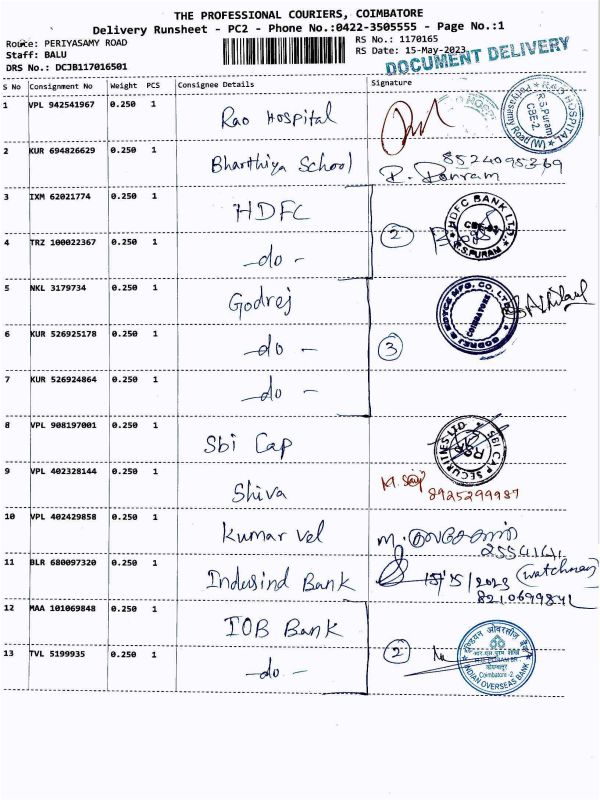 THE PROFESSIONAL COURIERS, COIMBATORE
Delivery Runsheet - PC2 - Phone No.:0422-3505555 - Page No.:1
Route: PERIYASAMY ROAD
Staff: BALU
DRS No.: DCJB117016501
RS No.: 1170165
RS Date: 15-May-2023
DOCUMENT DELIVERY
S No Consignment No Weight PCS Consignee Details Signature
1 VPL 942541967 0.250 1 Rao Hospital
RAO HOSPITAL
R.S.Puram
CBE-2.
Periyasamy Road (W)
2 KUR 694826629 0.250 1 Bharthiya School
3 IXM 62021774 0.250 1 HDFC
HDFC BANK LTD.
R.S.PURAM
4 TRZ 100022367 0.250 1 -do- 2
5 NKL 3179734 0.250 1 Godrej
GODREJ & BOYCE MFG. CO. LTD.
COIMBATORE
6 KUR 526925178 0.250 1 -do- 3
7 KUR 526924864 0.250 1 -do-
8 VPL 908197001 0.250 1 Sbi Cap
SBI CAP SECURITIES LTD
9 VPL 402328144 0.250 1 Shiva
8925299987
10 VPL 402429858 0.250 1 Kumar vel
11 BLR 680097320 0.250 1 Indusind Bank
15/5/2023 (watchman)
12 MAA 101069848 0.250 1 IOB Bank
13 TVL 5199935 0.250 1 -do- 2
इण्डियन ओवरसीज़ बैंक
Coimbatore -2.
INDIAN OVERSEAS BANK